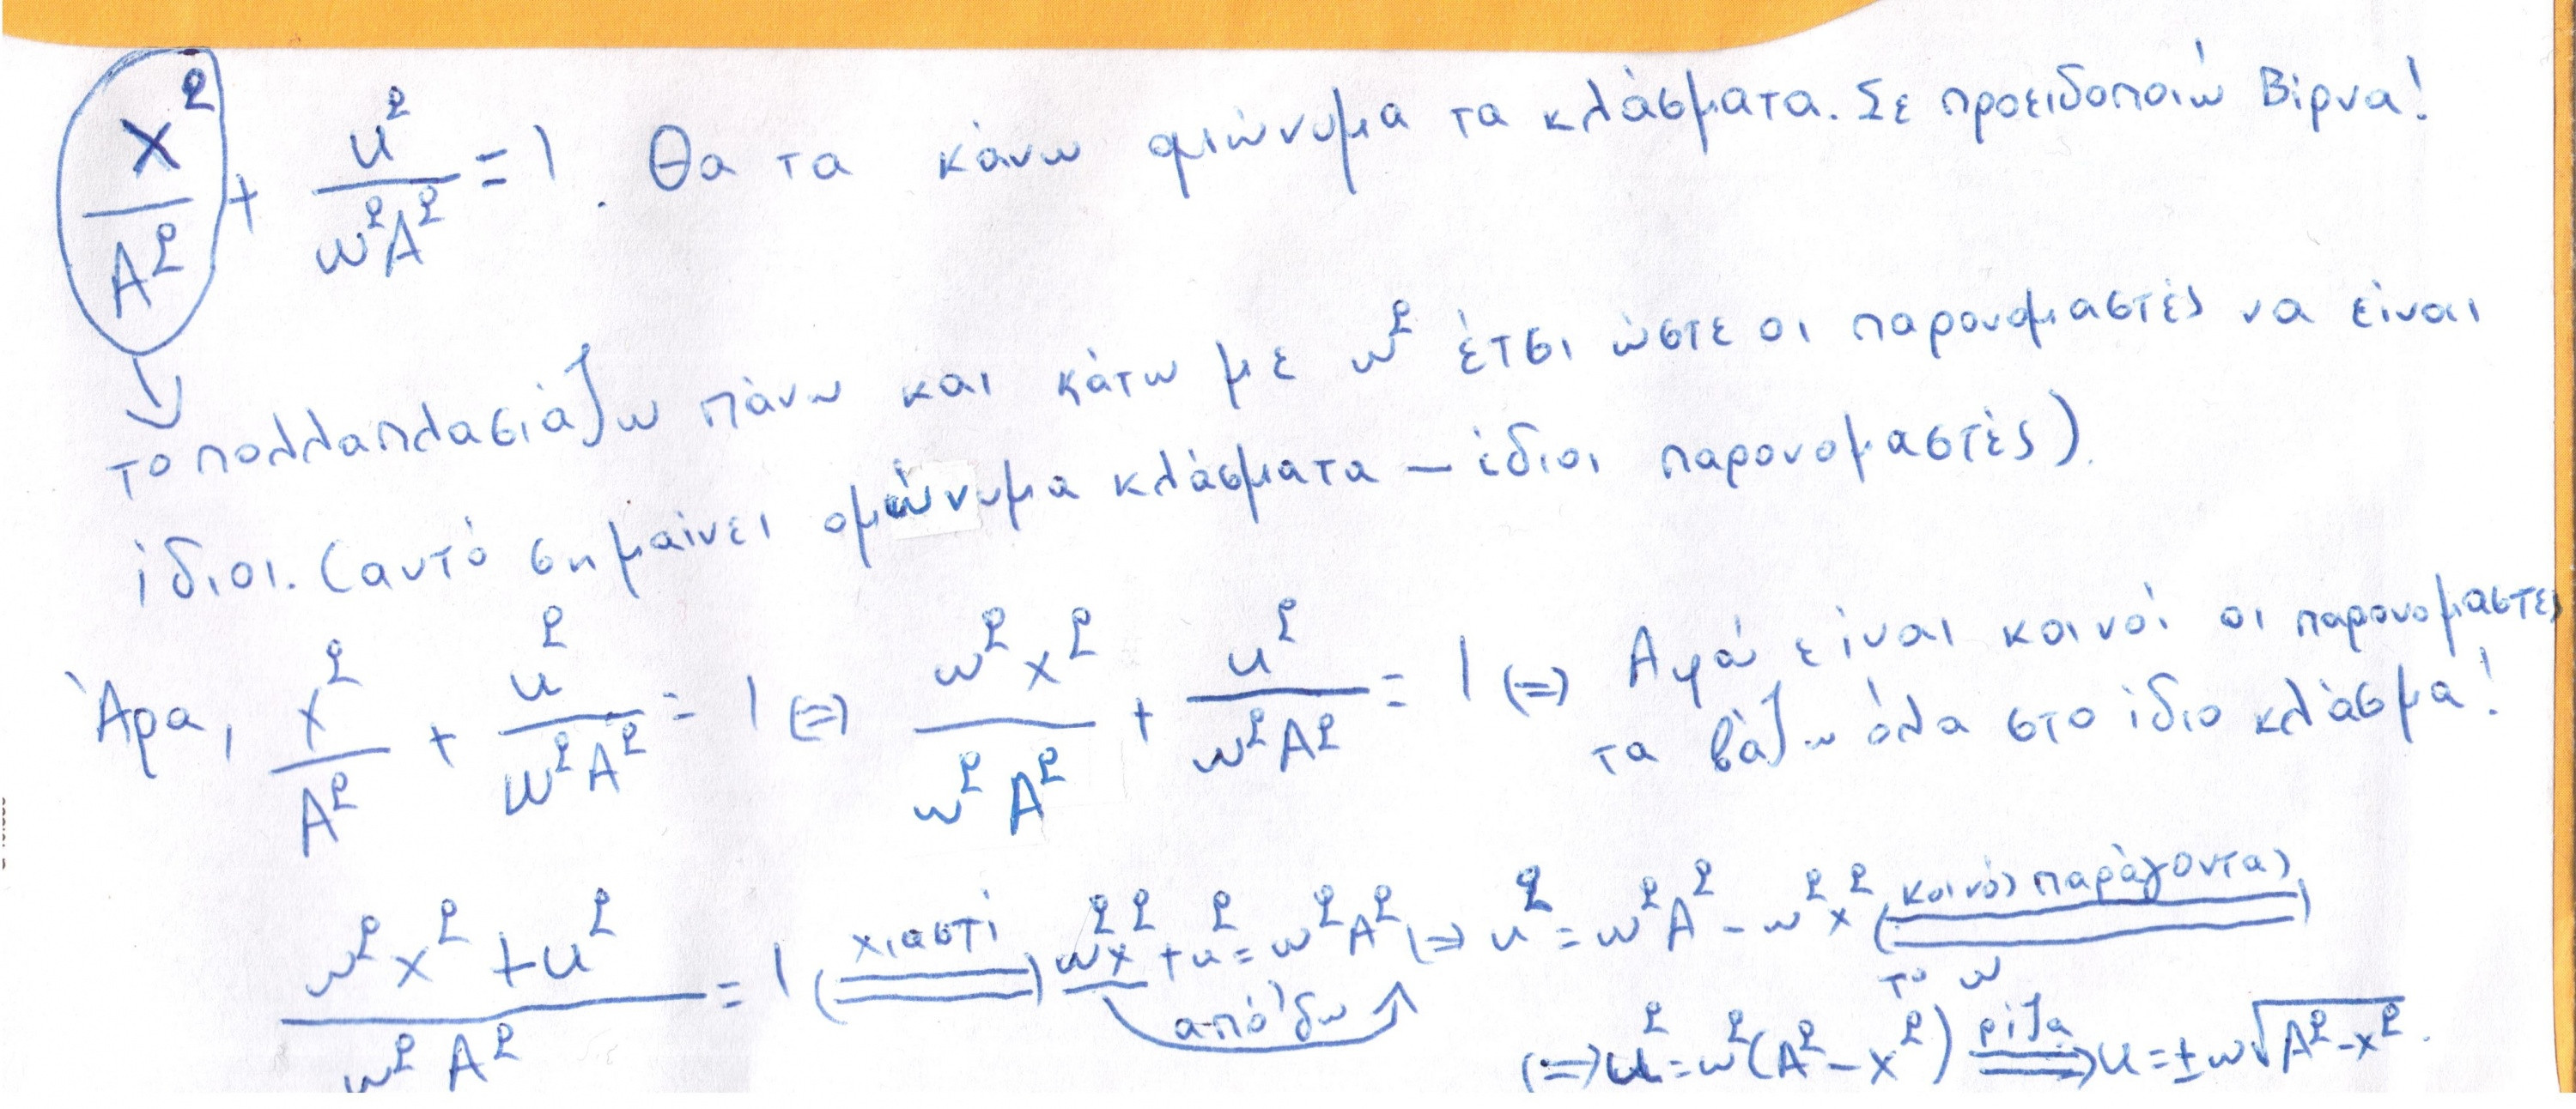 x²/A² + u²/ω²A² = 1. Θα τα κάνω ομώνυμα τα κλάσματα. Σε προειδοποιώ Βίρνα!
το πολλαπλασιάζω πάνω και κάτω με ω² έτσι ώστε οι παρονομαστές να είναι
ίδιοι. (αυτό σημαίνει ομώνυμα κλάσματα – ίδιοι παρονομαστές).
Άρα, x²/A² + u²/ω²A² = 1 (=) ω²x²/ω²A² + u²/ω²A² = 1 (=) Αφού είναι κοινοί οι παρονομαστές
τα βάζω όλα στο ίδιο κλάσμα!
ω²x² + u²/ω²A² = 1 (= χιαστί =) ω²x² + u² = ω²A² (=) u² = ω²A² - ω²x² (= κοινός παράγοντας =)
από 'δω το ω
(=) u² = ω²(A² - x²) ρίζα => u = ±ω√A² - x².